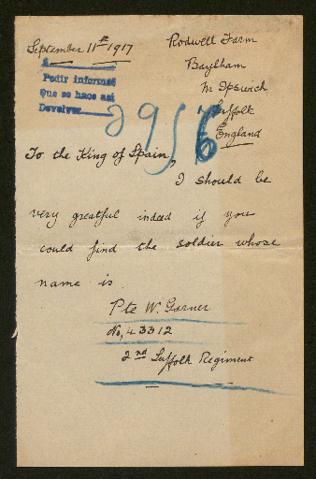 September 11th 1917
Rodwell Farm
Baylham
Nr Ipswich
Suffolk
England
A
Pedir informes
Que se hace así
Devolver
2956
To the King of Spain,
I should be
very greatful indeed if you
could find the soldier whose
name is
Pte W. Garner
No, 43312
2nd Suffolk Regiment